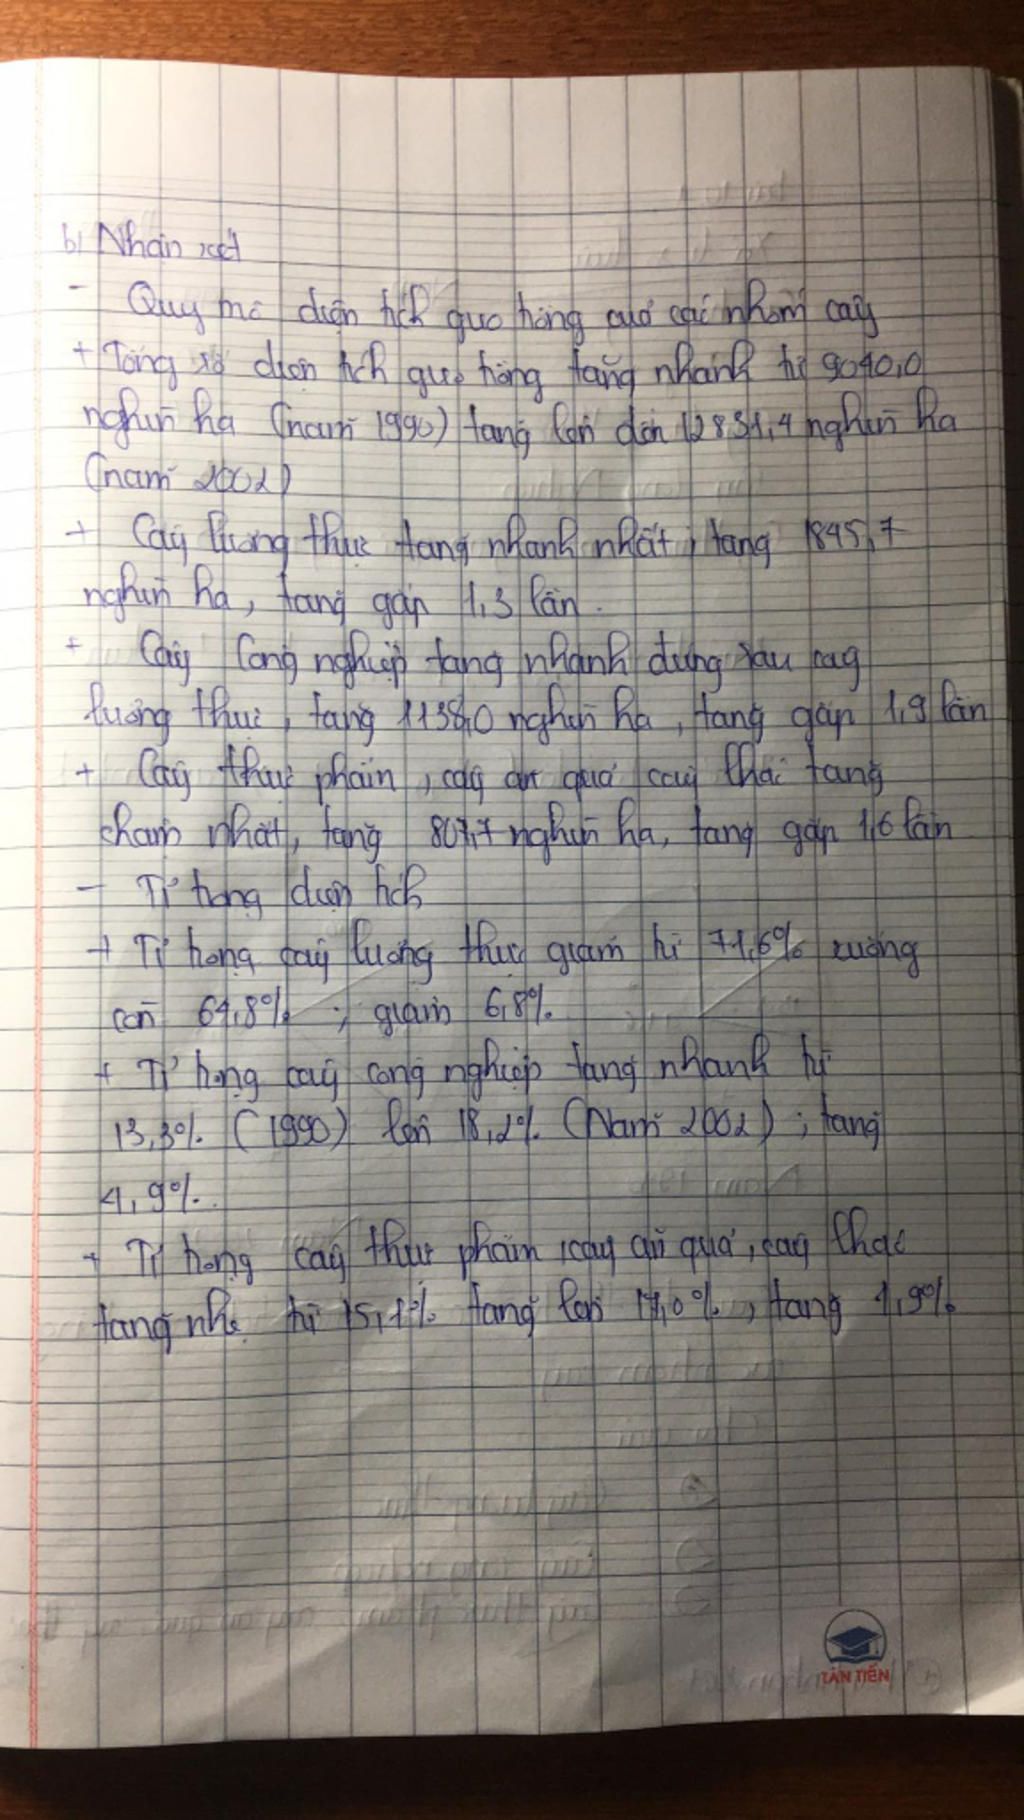 b) Nhận xét
- Quy mô diện tích gieo trồng của các nhóm cây
+ Tổng số diện tích gieo trồng tăng nhanh từ 9040,0
nghìn ha (năm 1990) tăng lên đến 12831,4 nghìn ha
(năm 2002)
+ Cây lương thực tăng nhanh nhất, tăng 1845,7
nghìn ha, tăng gấp 1,3 lần.
+ Cây công nghiệp tăng nhanh đứng sau cây
lương thực, tăng 1138,0 nghìn ha, tăng gấp 1,9 lần
+ Cây thực phẩm, cây ăn quả cây khác tăng
chậm nhất, tăng 807,7 nghìn ha, tăng gấp 1,6 lần
- Tỉ trọng diện tích
+ Tỉ trọng cây lương thực giảm từ 71,6% xuống
còn 64,8% ; giảm 6,8%.
+ Tỉ trọng cây công nghiệp tăng nhanh từ
13,3% (1990) lên 18,2% (Năm 2002) ; tăng
4,9%.
+ Tỉ trọng cây thực phẩm, cây ăn quả, cây khác
tăng nhẹ từ 15,1% tăng lên 17,0%, tăng 1,9%
TÂN TIẾN